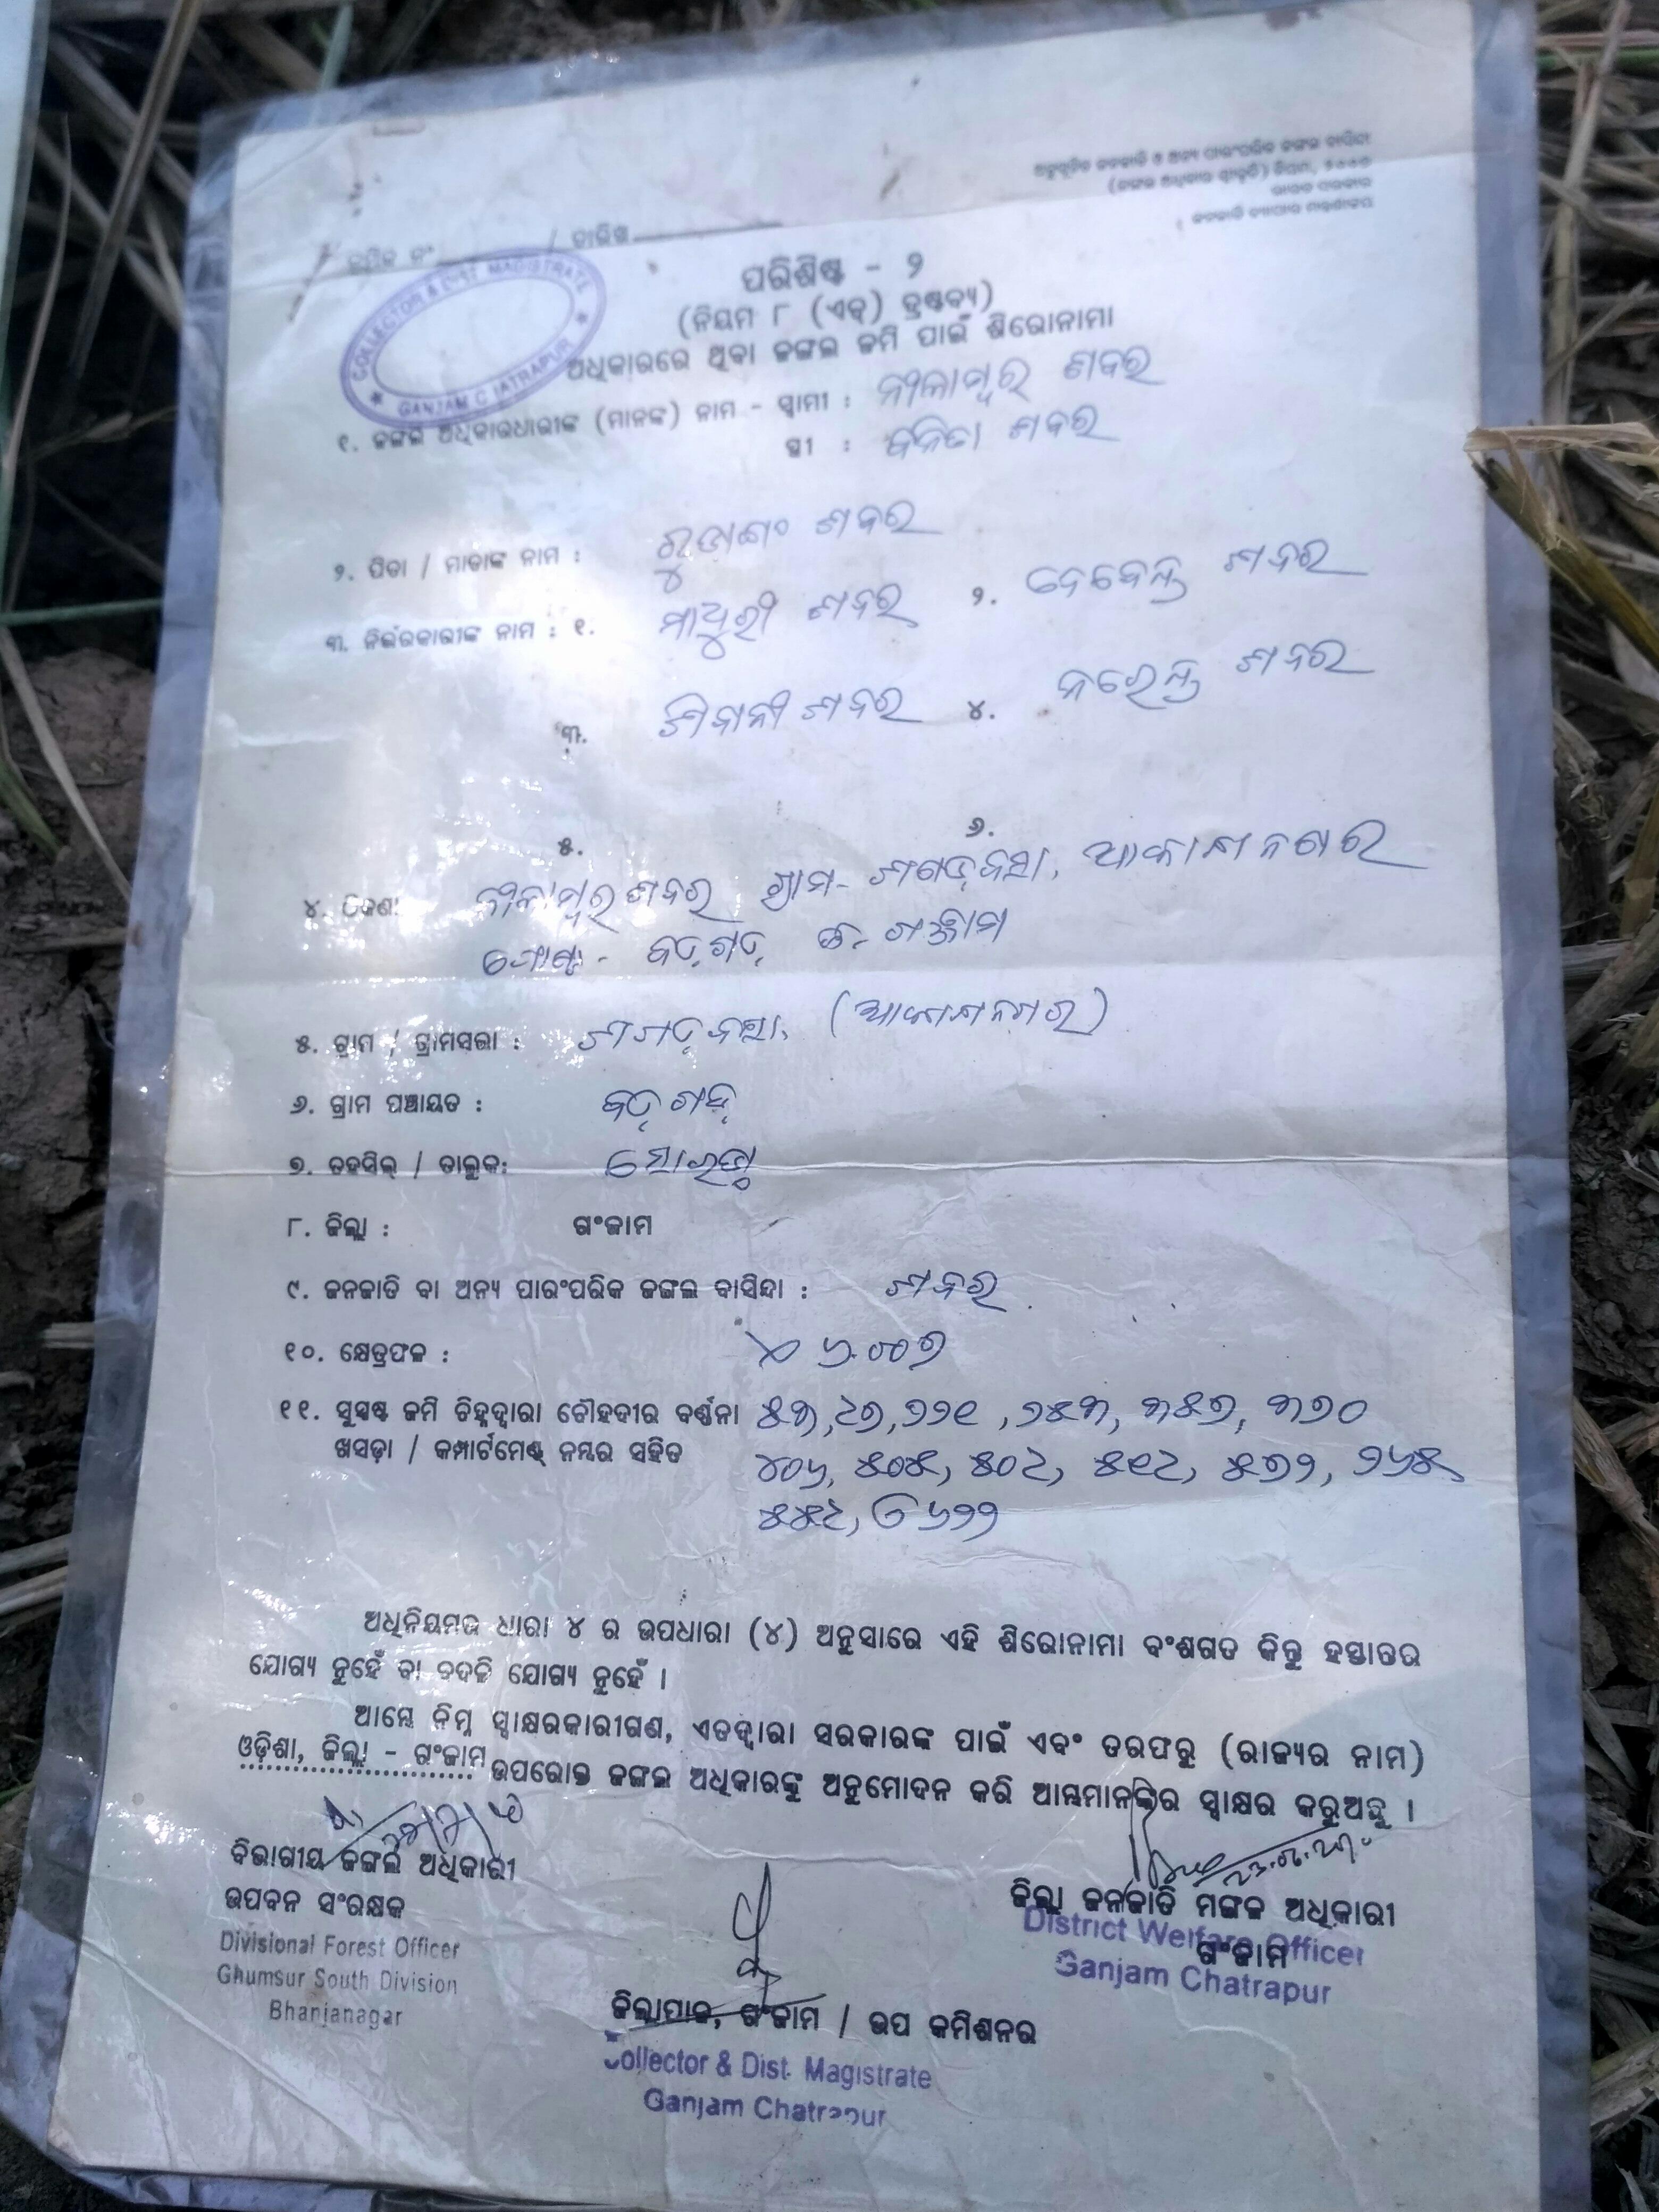 ଅନୁସୂଚିତ ଜନଜାତି ଓ ଅନ୍ୟ ପାରଂପରିକ ଜଙ୍ଗଲ ବାସିନ୍ଦା
(ଜଙ୍ଗଲ ଅଧିକାର ସ୍ୱୀକୃତି) ନିୟମ, ୨୦୦୭
ଭାରତ ସରକାର
ଜନଜାତି ବ୍ୟାପାର ମନ୍ତ୍ରଣାଳୟ
କ୍ରମିକ ନଂ / ତାରିଖ
COLLECTOR & DIST. MAGISTRATE
GANJAM CHATRAPUR
ପରିଶିଷ୍ଟ - ୨
(ନିୟମ ୮ (ଏଚ୍) ଦ୍ରଷ୍ଟବ୍ୟ)
ଅଧିକାରରେ ଥିବା ଜଙ୍ଗଲ ଜମି ପାଇଁ ଶିରୋନାମା
୧. ଜଙ୍ଗଲ ଅଧିକାରଧାରୀଙ୍କ (ମାନଙ୍କ) ନାମ - ସ୍ୱାମୀ : ନୀଳାମ୍ବର ଶବର
ସ୍ତ୍ରୀ : ବନିତା ଶବର
୨. ପିତା / ମାତାଙ୍କ ନାମ : ଶବର
୩. ନିର୍ଭରକାରୀଙ୍କ ନାମ : ୧. ମାଧୁରୀ ଶବର ୨. ଦେବେନ୍ଦ୍ର ଶବର
୩. ଶିବାନୀ ଶବର ୪. ନରେନ୍ଦ୍ର ଶବର
୫. ୬.
୪. ଠିକଣା ନୀଳାମ୍ବର ଶବର ଗ୍ରାମ- ଶଗଡ଼ବସା, ଆକାଶନଗର
ପୋଷ୍ଟ - ବଡ଼ଗଡ଼ ଜି- ଗଞ୍ଜାମ
୫. ଗ୍ରାମ / ଗ୍ରାମସଭା : ଶଗଡ଼ବସା, (ଆକାଶନଗର)
୬. ଗ୍ରାମ ପଞ୍ଚାୟତ : ବଡ଼ଗଡ଼
୭. ତହସିଲ୍ / ତାଲୁକ: ସୋରଡ଼ା
୮. ଜିଲ୍ଲା : ଗଂଜାମ
୯. ଜନଜାତି ବା ଅନ୍ୟ ପାରଂପରିକ ଜଙ୍ଗଲ ବାସିନ୍ଦା : ଶବର
୧୦. କ୍ଷେତ୍ରଫଳ : ୬.୦୦୭
୧୧. ସୁସ୍ପଷ୍ଟ ଜମି ଚିହ୍ନଦ୍ୱାରା ଚୌହଦୀର ବର୍ଣ୍ଣନା ୫୩, ୨୭, ୨୨୧, ୨୫୩, ୩୫୭, ୩୭୦
ଖସଡ଼ା / କମ୍ପାର୍ଟମେଣ୍ଟ୍ ନମ୍ବର ସହିତ ୪୦୬, ୫୦୫, ୫୦୨, ୫୧୨, ୫୭୨, ୨୬୫
୫୫୨, ଓ ୬୨୨
ଅଧିନିୟମର ଧାରା ୪ ର ଉପଧାରା (୪) ଅନୁସାରେ ଏହି ଶିରୋନାମା ବଂଶଗତ କିନ୍ତୁ ହସ୍ତାନ୍ତର
ଯୋଗ୍ୟ ନୁହେଁ ବା ବଦଳି ଯୋଗ୍ୟ ନୁହେଁ ।
ଆମ୍ଭେ ନିମ୍ନ ସ୍ୱାକ୍ଷରକାରୀଗଣ, ଏତଦ୍ଦ୍ୱାରା ସରକାରଙ୍କ ପାଇଁ ଏବଂ ତରଫରୁ (ରାଜ୍ୟର ନାମ)
ଓଡ଼ିଶା, ଜିଲ୍ଲା - ଗଂଜାମ ଉପରୋକ୍ତ ଜଙ୍ଗଲ ଅଧିକାରଙ୍କୁ ଅନୁମୋଦନ କରି ଆମ୍ଭମାନଙ୍କର ସ୍ୱାକ୍ଷର କରୁଅଛୁ ।
ବିଭାଗୀୟ ଜଙ୍ଗଲ ଅଧିକାରୀ
ଉପବନ ସଂରକ୍ଷକ
Divisional Forest Officer
Ghumsur South Division
Bhanjanagar
ଜିଲ୍ଲା ଜନଜାତି ମଙ୍ଗଳ ଅଧିକାରୀ
ଗଂଜାମ
District Welfare Officer
Ganjam Chatrapur
ଜିଲ୍ଲାପାଳ, ଗଂଜାମ / ଉପ କମିଶନର
Collector & Dist. Magistrate
Ganjam Chatrapur